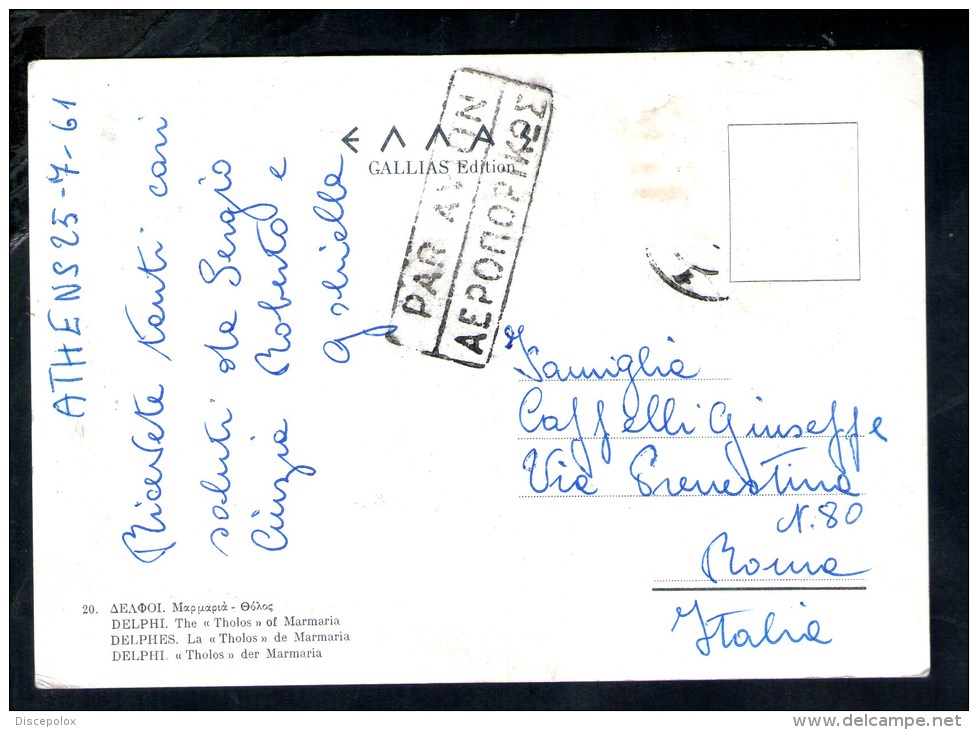 ATHENS 25-7-61
Ricevete tanti cari
saluti da Sergio
Cinzia Roberto e
Gabriella
ΕΛΛΑΣ
GALLIAS Edition
PAR AVION
ΑΕΡΟΠΟΡΙΚΩΣ
Famiglia
Caffelli Giuseppe
Via Prenestina
N. 80
Roma
Italia
20. ΔΕΛΦΟΙ. Μαρμαριὰ - Θόλος
DELPHI. The « Tholos » of Marmaria
DELPHES. La « Tholos » de Marmaria
DELPHI. « Tholos » der Marmaria
Discepolox
www.delcampe.net